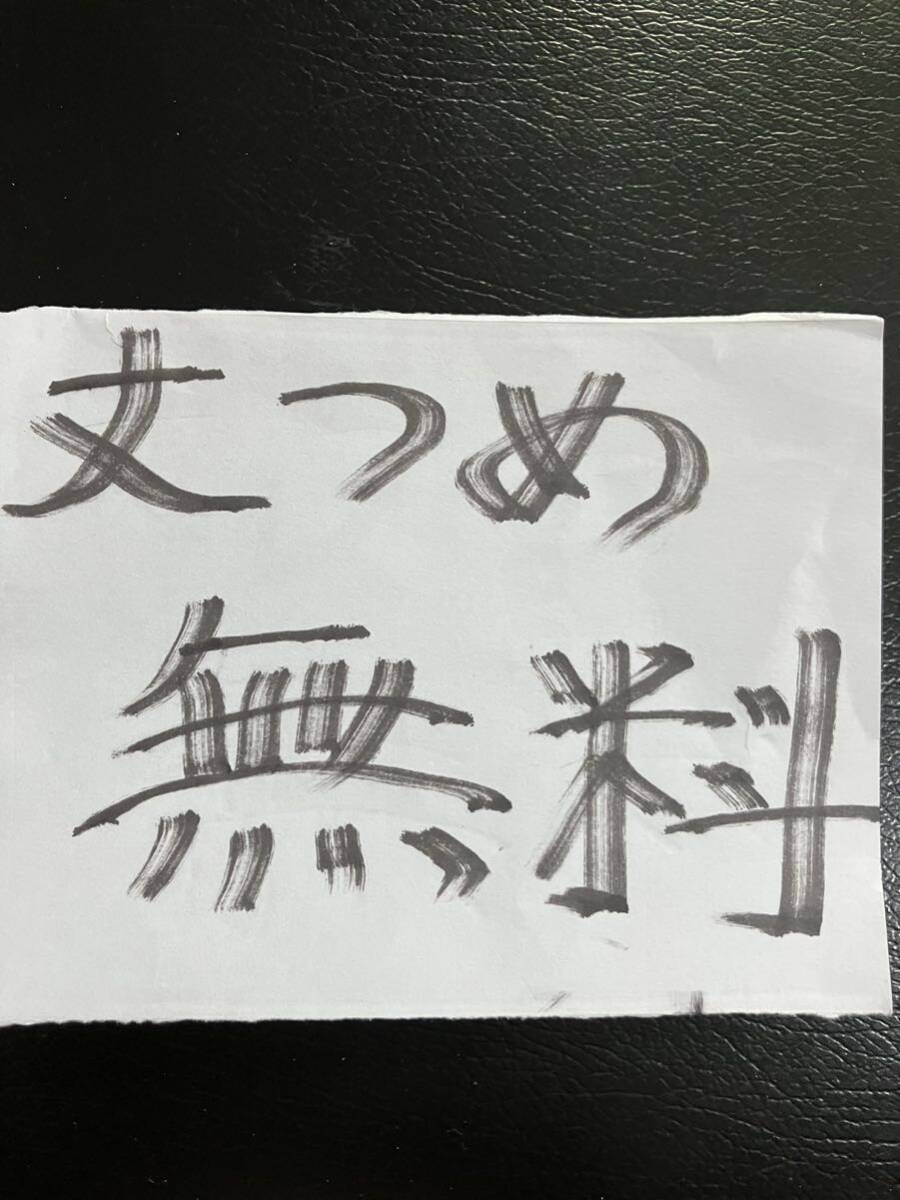 丈つめ
無料